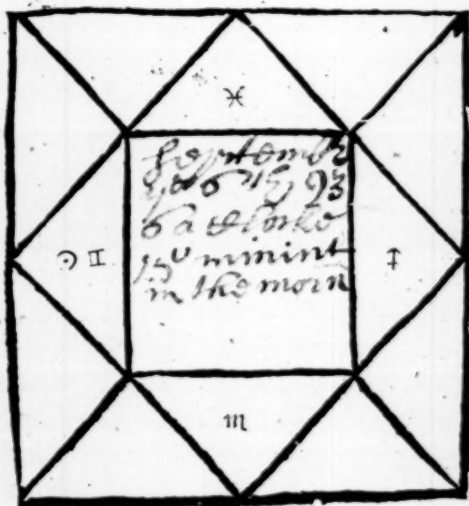 ♓
September
ye 6 th 93
6 a clocke
☾ ♊ ♐
minint
in the morn
♍